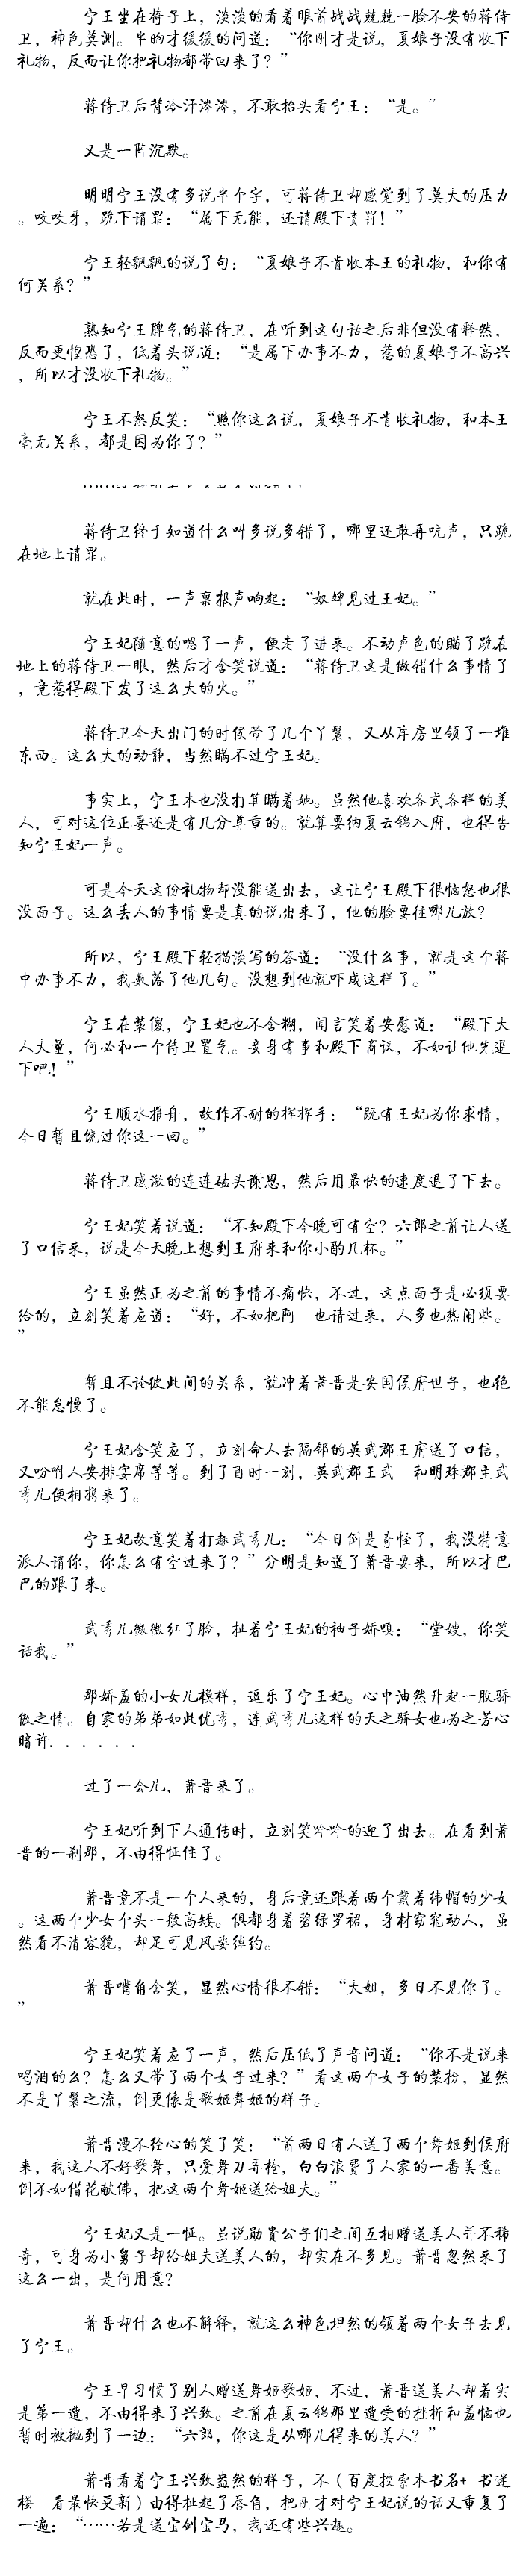 宁王坐在椅子上，淡淡的看着眼前战战兢兢一脸不安的蒋侍
卫，神色莫测。半晌才缓缓的问道：“你刚才是说，夏娘子没有收下
礼物，反而让你把礼物都带回来了？”
蒋侍卫后背冷汗涔涔，不敢抬头看宁王：“是。”
又是一阵沉默。
明明宁王没有多说半个字，可蒋侍卫却感觉到了莫大的压力
。咬咬牙，跪下请罪：“属下无能，还请殿下责罚！”
宁王轻飘飘的说了句：“夏娘子不肯收本王的礼物，和你有
何关系？”
熟知宁王脾气的蒋侍卫，在听到这句话之后非但没有释然，
反而更惶恐了，低着头说道：“是属下办事不力，惹的夏娘子不高兴
，所以才没收下礼物。”
宁王不怒反笑：“照你这么说，夏娘子不肯收礼物，和本王
毫无关系，都是因为你了？”
蒋侍卫终于知道什么叫多说多错了，哪里还敢再吭声，只跪
在地上请罪。
就在此时，一声禀报声响起：“奴婢见过王妃。”
宁王妃随意的嗯了一声，便走了进来。不动声色的瞄了跪在
地上的蒋侍卫一眼，然后才含笑说道：“蒋侍卫这是做错什么事情了
，竟惹得殿下发了这么大的火。”
蒋侍卫今天出门的时候带了几个丫鬟，又从库房里领了一堆
东西。这么大的动静，当然瞒不过宁王妃。
事实上，宁王本也没打算瞒着她。虽然他喜欢各式各样的美
人，可对这位正妻还是有几分尊重的。就算要纳夏云锦入府，也得告
知宁王妃一声。
可是今天这份礼物却没能送出去，这让宁王殿下很恼怒也很
没面子。这么丢人的事情要是真的说出来了，他的脸要往哪儿放？
所以，宁王殿下轻描淡写的答道：“没什么事，就是这个蒋
中办事不力，我数落了他几句。没想到他就吓成这样了。”
宁王在装傻，宁王妃也不含糊，闻言笑着安慰道：“殿下大
人大量，何必和一个侍卫置气。妾身有事和殿下商议，不如让他先退
下吧！”
宁王顺水推舟，故作不耐的挥挥手：“既有王妃为你求情，
今日暂且饶过你这一回。”
蒋侍卫感激的连连磕头谢恩，然后用最快的速度退了下去。
宁王妃笑着说道：“不知殿下今晚可有空？六郎之前让人送
了口信来，说是今天晚上想到王府来和你小酌几杯。”
宁王虽然正为之前的事情不痛快，不过，这点面子是必须要
给的，立刻笑着应道：“好，不如把阿 也请过来，人多也热闹些。
”
暂且不论彼此间的关系，就冲着萧晋是安国侯府世子，也绝
不能怠慢了。
宁王妃含笑应了，立刻命人去隔邻的英武郡王府送了口信，
又吩咐人安排宴席等等。到了酉时一刻，英武郡王武 和明珠郡主武
秀儿便相携来了。
宁王妃故意笑着打趣武秀儿：“今日倒是奇怪了，我没特意
派人请你，你怎么有空过来了？”分明是知道了萧晋要来，所以才巴
巴的跟了来。
武秀儿微微红了脸，扯着宁王妃的袖子娇嗔：“堂嫂，你笑
话我。”
那娇羞的小女儿模样，逗乐了宁王妃。心中油然升起一股骄
傲之情。自家的弟弟如此优秀，连武秀儿这样的天之骄女也为之芳心
暗许．．．．．．
过了一会儿，萧晋来了。
宁王妃听到下人通传时，立刻笑吟吟的迎了出去。在看到萧
晋的一刹那，不由得怔住了。
萧晋竟不是一个人来的，身后竟还跟着两个戴着纬帽的少女
。这两个少女个头一般高矮。俱都身着碧绿罗裙，身材窈窕动人，虽
然看不清容貌，却足可见风姿绰约。
萧晋嘴角含笑，显然心情很不错：“大姐，多日不见你了。
”
宁王妃笑着应了一声，然后压低了声音问道：“你不是说来
喝酒的么？怎么又带了两个女子过来？”看这两个女子的装扮，显然
不是丫鬟之流，倒更像是歌姬舞姬的样子。
萧晋漫不经心的笑了笑：“前两日有人送了两个舞姬到侯府
来，我这人不好歌舞，只爱舞刀弄枪，白白浪费了人家的一番美意。
倒不如借花献佛，把这两个舞姬送给姐夫。”
宁王妃又是一怔。虽说勋贵公子们之间互相赠送美人并不稀
奇，可身为小舅子却给姐夫送美人的，却实在不多见。萧晋忽然来了
这么一出，是何用意？
萧晋却什么也不解释，就这么神色坦然的领着两个女子去见
了宁王。
宁王早习惯了别人赠送舞姬歌姬，不过，萧晋送美人却着实
是第一遭，不由得来了兴致。之前在夏云锦那里遭受的挫折和羞恼也
暂时被抛到了一边：“六郎，你这是从哪儿得来的美人？”
萧晋看着宁王兴致盎然的样子，不（百度搜索本书名+ 书迷
楼 看最快更新）由得扯起了唇角，把刚才对宁王妃说的话又重复了
一遍：“……若是送宝剑宝马，我还有些兴趣。